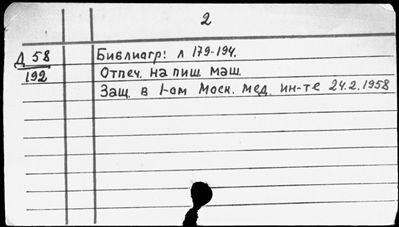 2
Д 58
192
Библиагр: л 179-194.
Отпеч. на пиш. маш.
Защ. в 1-ом Моск. мед. ин-те 24.2.1958